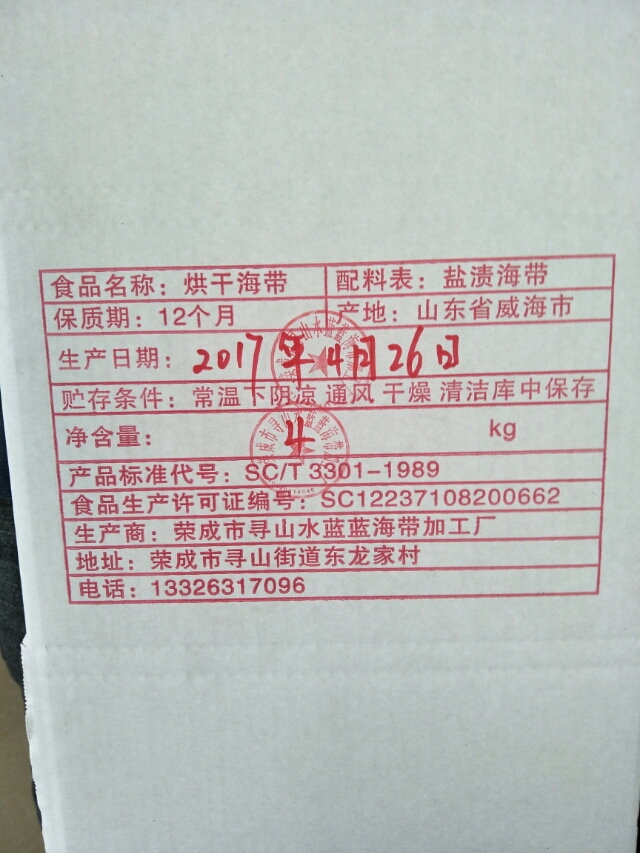 食品名称：烘干海带 配料表：盐渍海带
保质期：12个月 产地：山东省威海市
生产日期：2017年14月26日
贮存条件：常温下阴凉 通风 干燥 清洁库中保存
净含量：4 kg
产品标准代号：SC/T 3301-1989
食品生产许可证编号：SC12237108200662
生产商：荣成市寻山水蓝蓝海带加工厂
地址：荣成市寻山街道东龙家村
电话：13326317096